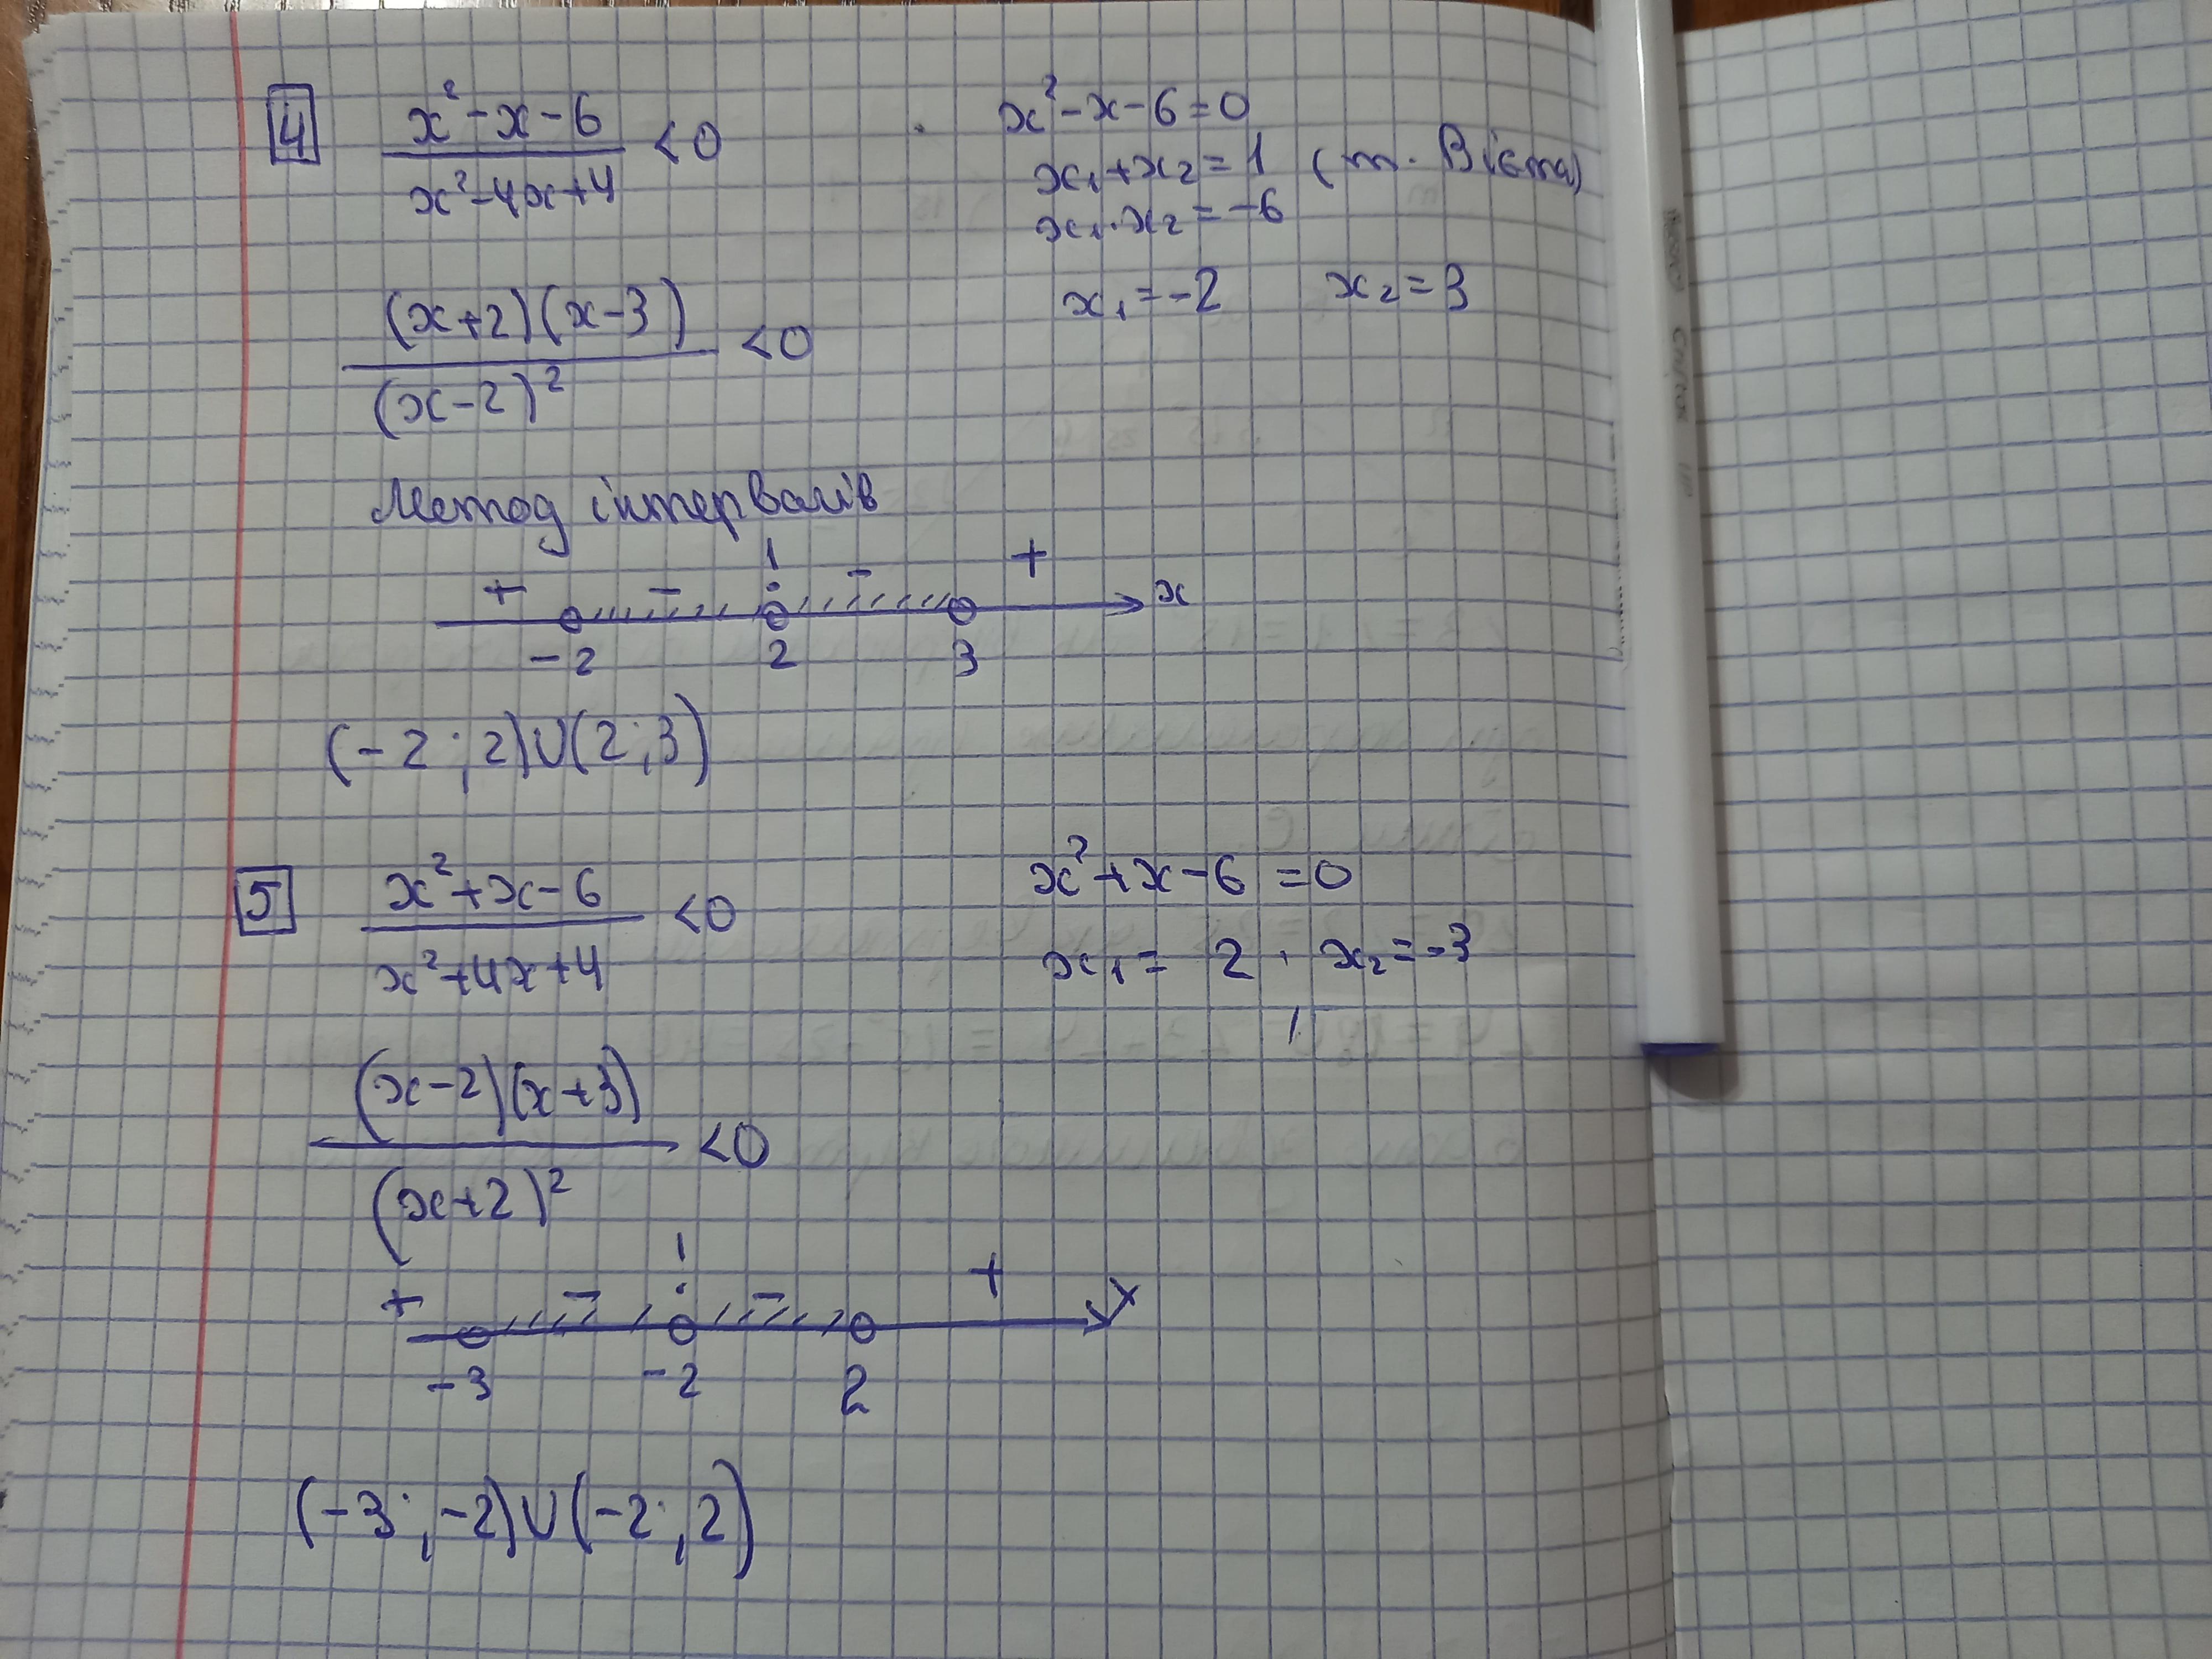 4 (x² - x - 6)/(x² - 4x + 4) < 0
x² - x - 6 = 0
x₁ + x₂ = 1 (т. Вієта)
x₁ · x₂ = -6
x₁ = -2 x₂ = 3
((x+2)(x-3))/(x-2)² < 0
Метод інтервалів
+ - ! - + x
-2 2 3
(-2; 2)∪(2; 3)
5 (x² + x - 6)/(x² + 4x + 4) < 0
x² + x - 6 = 0
x₁ = 2, x₂ = -3
((x-2)(x+3))/(x+2)² < 0
+ - ! - + x
-3 -2 2
(-3; -2)∪(-2; 2)